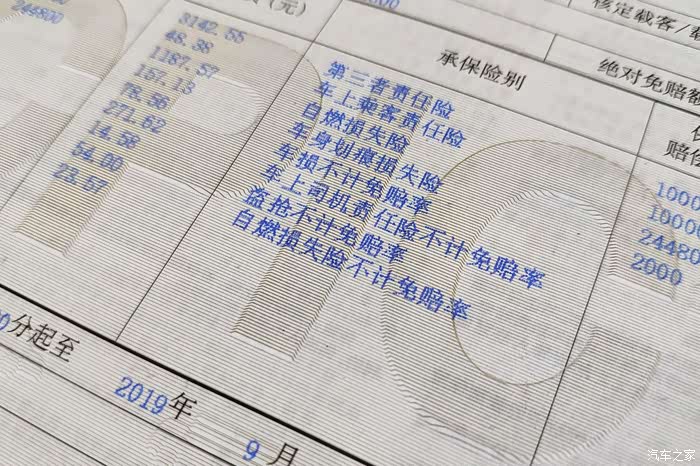 (元)
核定载客/
244800
3142.55
48.36
1187.57
157.13
78.56
271.62
14.58
54.00
23.57
承保险别
绝对免赔
第三者责任险
车上乘客责任险
自燃损失险
车身划痕损失险
车损不计免赔率
车上司机责任险不计免赔率
盗抢不计免赔率
自燃损失险不计免赔率
赔偿
1000
10000
24480
2000
分起至
2019年
9月
汽车之家